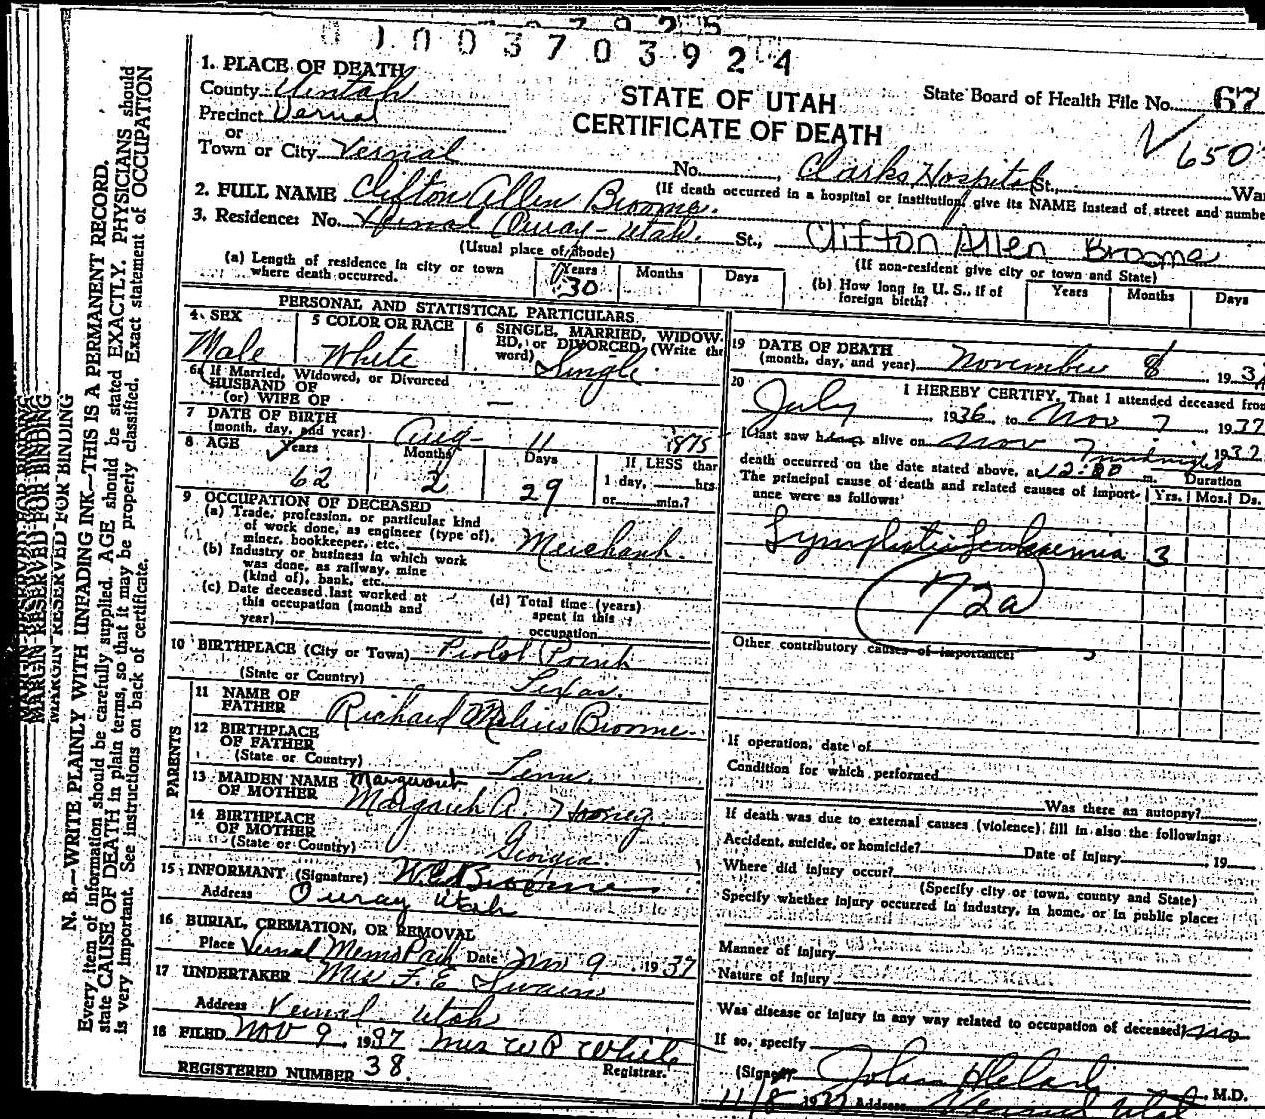 0 1 0 0 3 7 0 3 9 2 4
1. PLACE OF DEATH
County Uintah
Precinct Vernal
or
Town or City Vernal
STATE OF UTAH
CERTIFICATE OF DEATH
State Board of Health File No. 67
V 650
No. Clarks Hospital St., War
(If death occurred in a hospital or institution, give its NAME instead of street and numbe
2. FULL NAME Clifton Allen Broome.
3. Residence: No. Ouray - Utah. St., Clifton Allen Broome
(Usual place of abode)
(If non-resident give city or town and State)
(a) Length of residence in city or town where death occurred. Years 30 Months Days
(b) How long in U. S., if of foreign birth? Years Months Days
PERSONAL AND STATISTICAL PARTICULARS
4. SEX Male
5 COLOR OR RACE White
6 SINGLE, MARRIED, WIDOW-
ED, or DIVORCED (Write the
word) Single
6a If Married, Widowed, or Divorced
HUSBAND OF
(or) WIFE OF —
7 DATE OF BIRTH
(month, day, and year) Aug - 11 1875
8 AGE Years 62 Months 2 Days 29 If LESS than
1 day, hrs.
or min.?
9 OCCUPATION OF DECEASED
(a) Trade, profession, or particular kind
of work done, as engineer (type of),
miner, bookkeeper, etc. Merchant.
(b) Industry or business in which work
was done, as railway, mine
(kind of), bank, etc.
(c) Date deceased last worked at
this occupation (month and
year)
(d) Total time (years)
spent in this
occupation
10 BIRTHPLACE (City or Town) Point
(State or Country) Texas.
PARENTS
11 NAME OF
FATHER Richard Broome.
12 BIRTHPLACE
OF FATHER
(State or Country) Tenn.
13 MAIDEN NAME
OF MOTHER A.
14 BIRTHPLACE
OF MOTHER
(State or Country) Georgia
15 INFORMANT (Signature) Broome
Address Ouray Utah
16 BURIAL, CREMATION, OR REMOVAL
Place Vernal Memo Park Date Nov 9 1937
17 UNDERTAKER Mrs F. E. Swain
Address Vernal Utah
18 FILED Nov 9 1937 Mrs W P White
Registrar.
REGISTERED NUMBER 38.
19 DATE OF DEATH
(month, day, and year) November 8 193
20 I HEREBY CERTIFY, That I attended deceased from
July 1936 to Nov 7 1937
I last saw h alive on Nov 7 1937
midnight
death occurred on the date stated above, at 12:00 m.
The principal cause of death and related causes of import-
ance were as follows:
Duration
Yrs. Mos. Ds.
Lymphatic Leukaemia 3
72a
Other contributory causes of importance:
If operation, date of
Condition for which performed
Was there an autopsy?
If death was due to external causes (violence) fill in also the following:
Accident, suicide, or homicide? Date of injury , 19
Where did injury occur?
(Specify city or town, county and State)
Specify whether injury occurred in industry, in home, or in public place:
Manner of injury
Nature of injury
Was disease or injury in any way related to occupation of deceased? no
If so, specify
(Signed) M.D.
11/8 1937 Address Vernal Utah
MARGIN RESERVED FOR BINDING
N. B.—WRITE PLAINLY WITH UNFADING INK—THIS IS A PERMANENT RECORD.
Every item of information should be carefully supplied. AGE should be stated EXACTLY. PHYSICIANS should
state CAUSE OF DEATH in plain terms, so that it may be properly classified. Exact statement of OCCUPATION
is very important. See instructions on back of certificate.